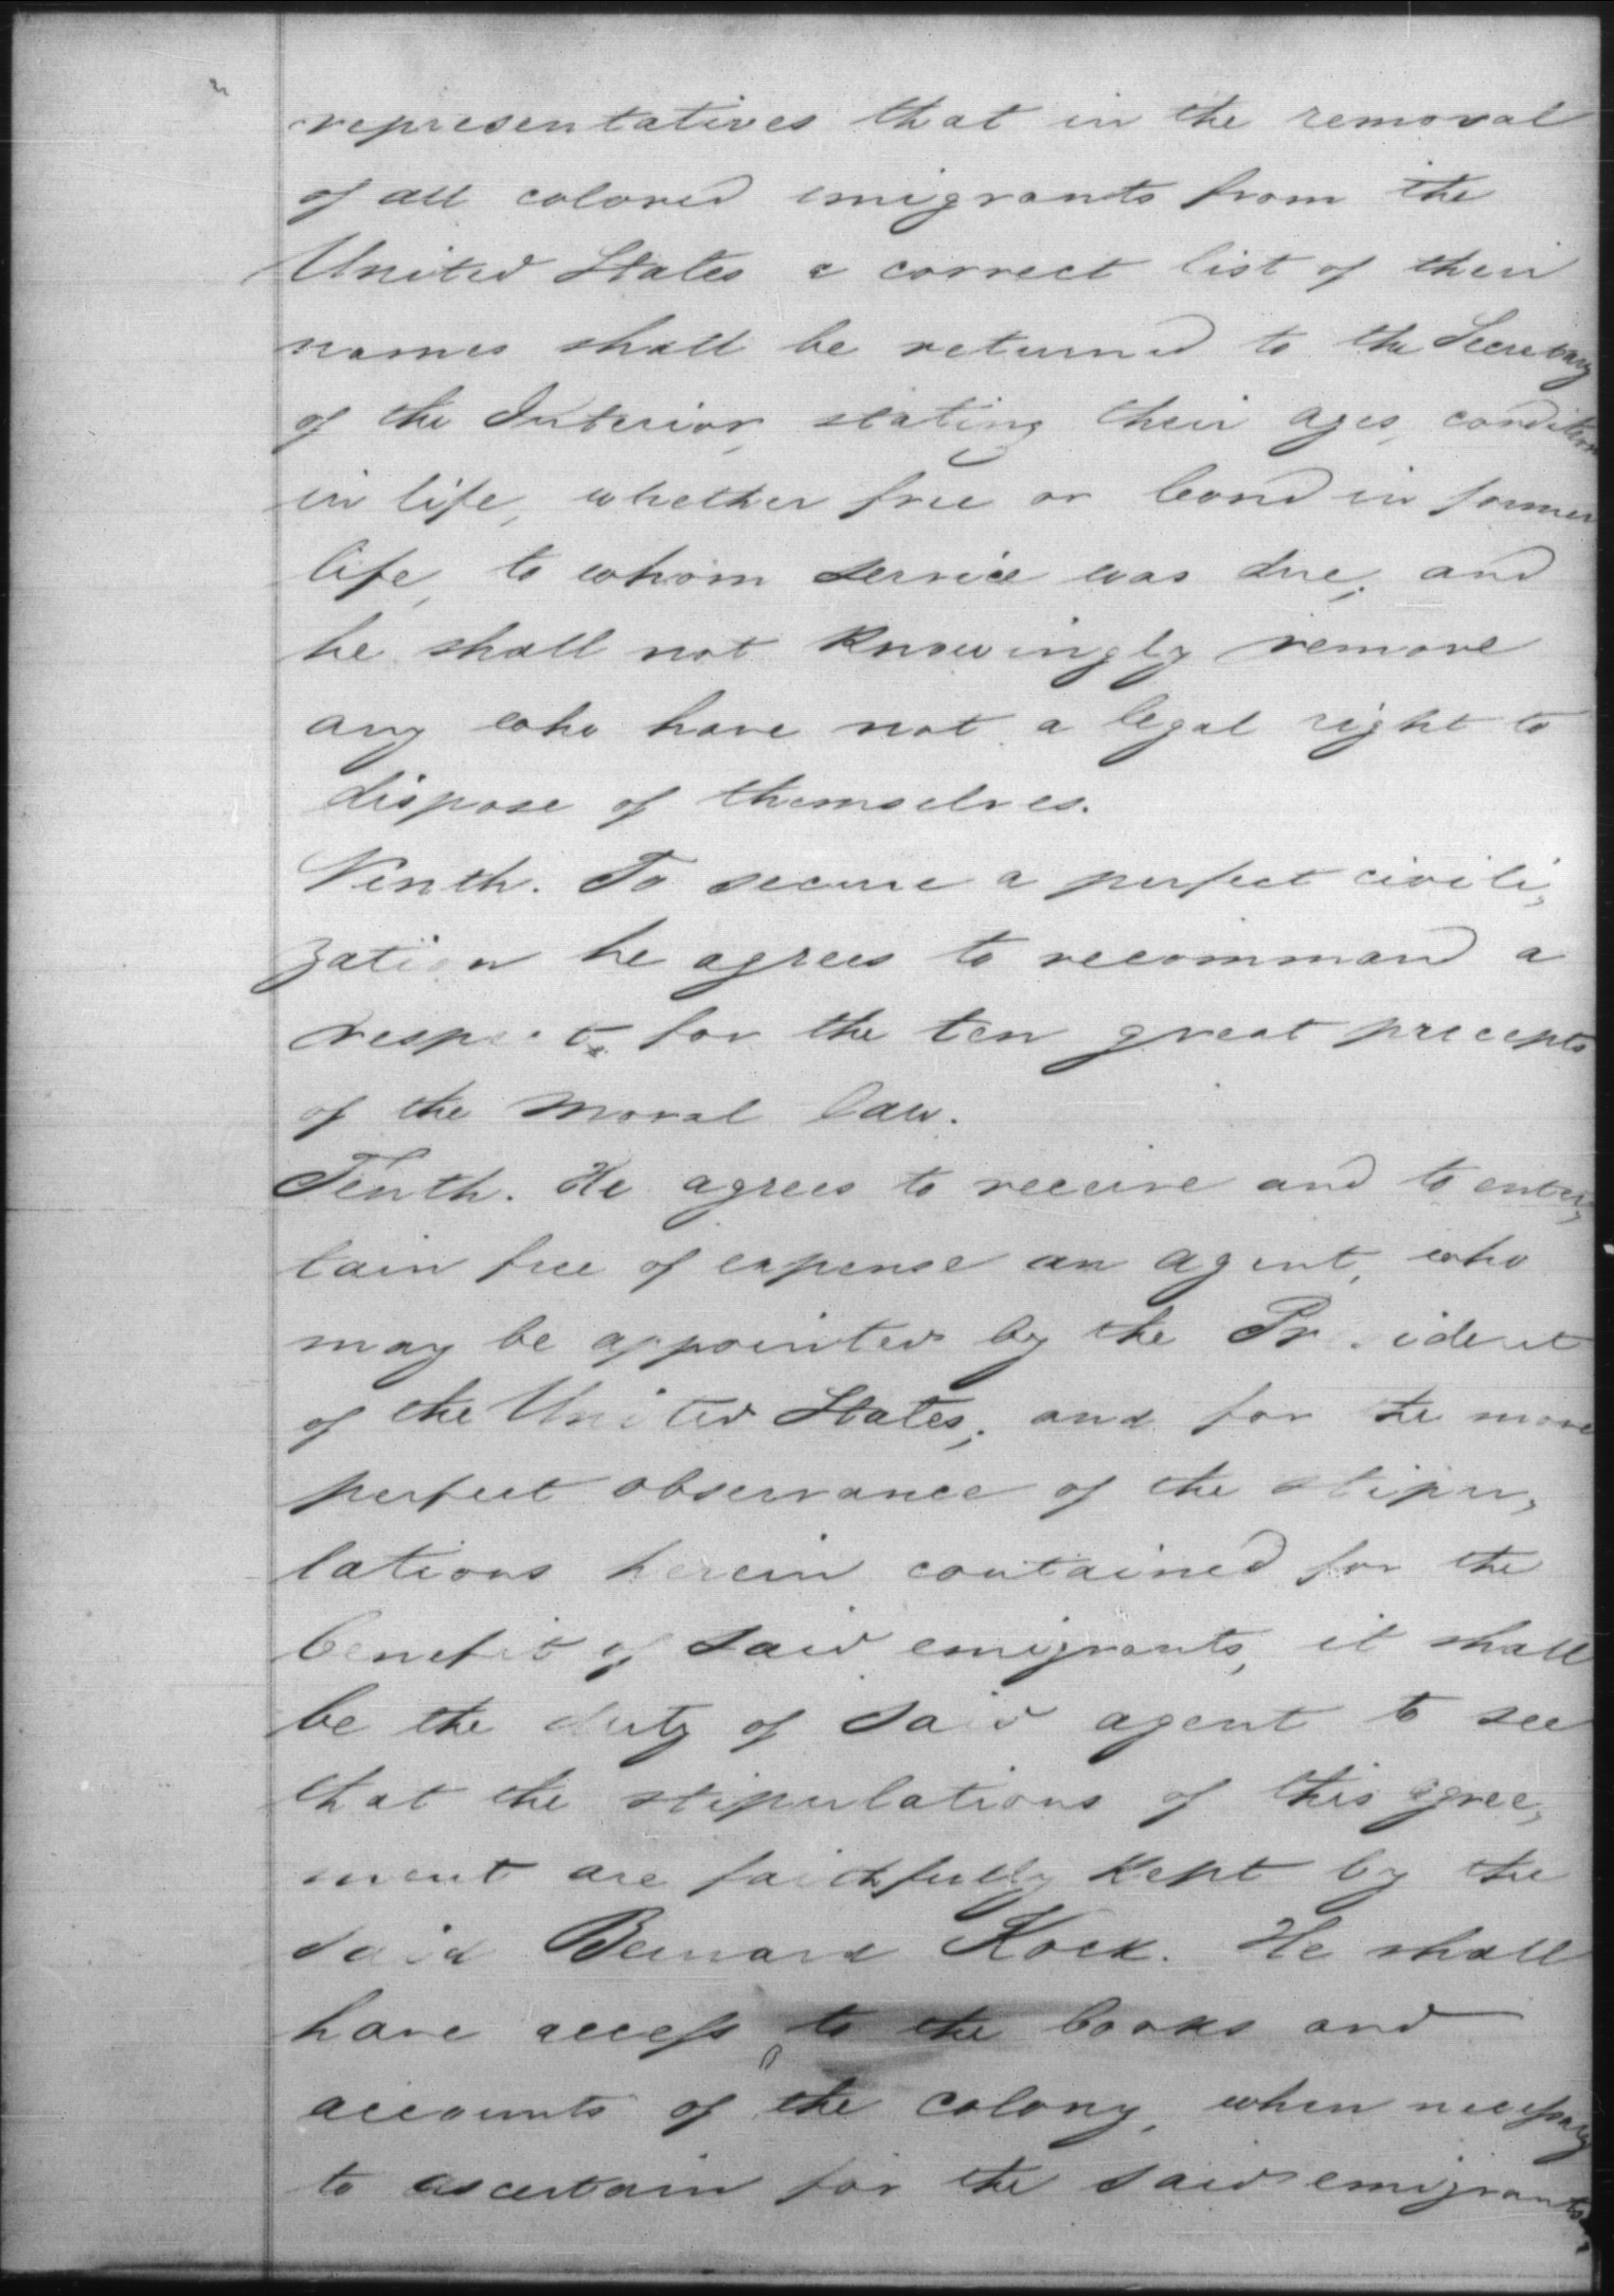 representatives that in the removal
of all colored emigrants from the
United States a correct list of their
names shall be returned to the Secretary
of the Interior, stating their ages, condition
in life, whether free or bond in former
life, to whom service was due; and
he shall not knowingly remove
any who have not a legal right to
dispose of themselves.
Ninth. To secure a perfect civili,
zation he agrees to recommend a
respect for the ten great precepts
of the moral law.
Tenth. He agrees to receive and to enter,
tain free of expense an agent, who
may be appointed by the President
of the United States; and for the more
perfect observance of the stipu,
lations herein contained for the
benefit of said emigrants, it shall
be the duty of said agent to see
that the stipulations of this agree,
ment are faithfully kept by the
said Bernard Kock. He shall
have access to the books and
accounts of the colony, when necessary
to ascertain for the said emigrants,